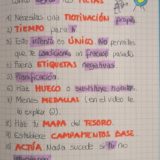 METAS
1) Necesitas una MOTIVACIÓN propia.
2) TIEMPO para ti
3) Este intento es ÚNICO. No permitas
que te condicione un fracaso pasado.
4) Fuera ETIQUETAS negativas
5) Planificación.
6) Haz HUECO o ESTUDIO
7) Menos MEDALLAS (en el vídeo te
lo explico).
8) Haz tu MAPA del TESORO
9) Establece CAMPAMENTOS BASE.
10) ACTÚA Nada sucede si tú no